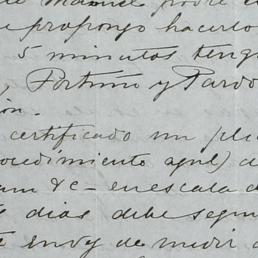 Manuel podré e
e propongo hacerlo
5 minutos teng
, Fortuño y Pardo
ion.
certificado un pli
ocedimiento azul) d
am &c - en escala d
dias debe segui
envoy de medir a